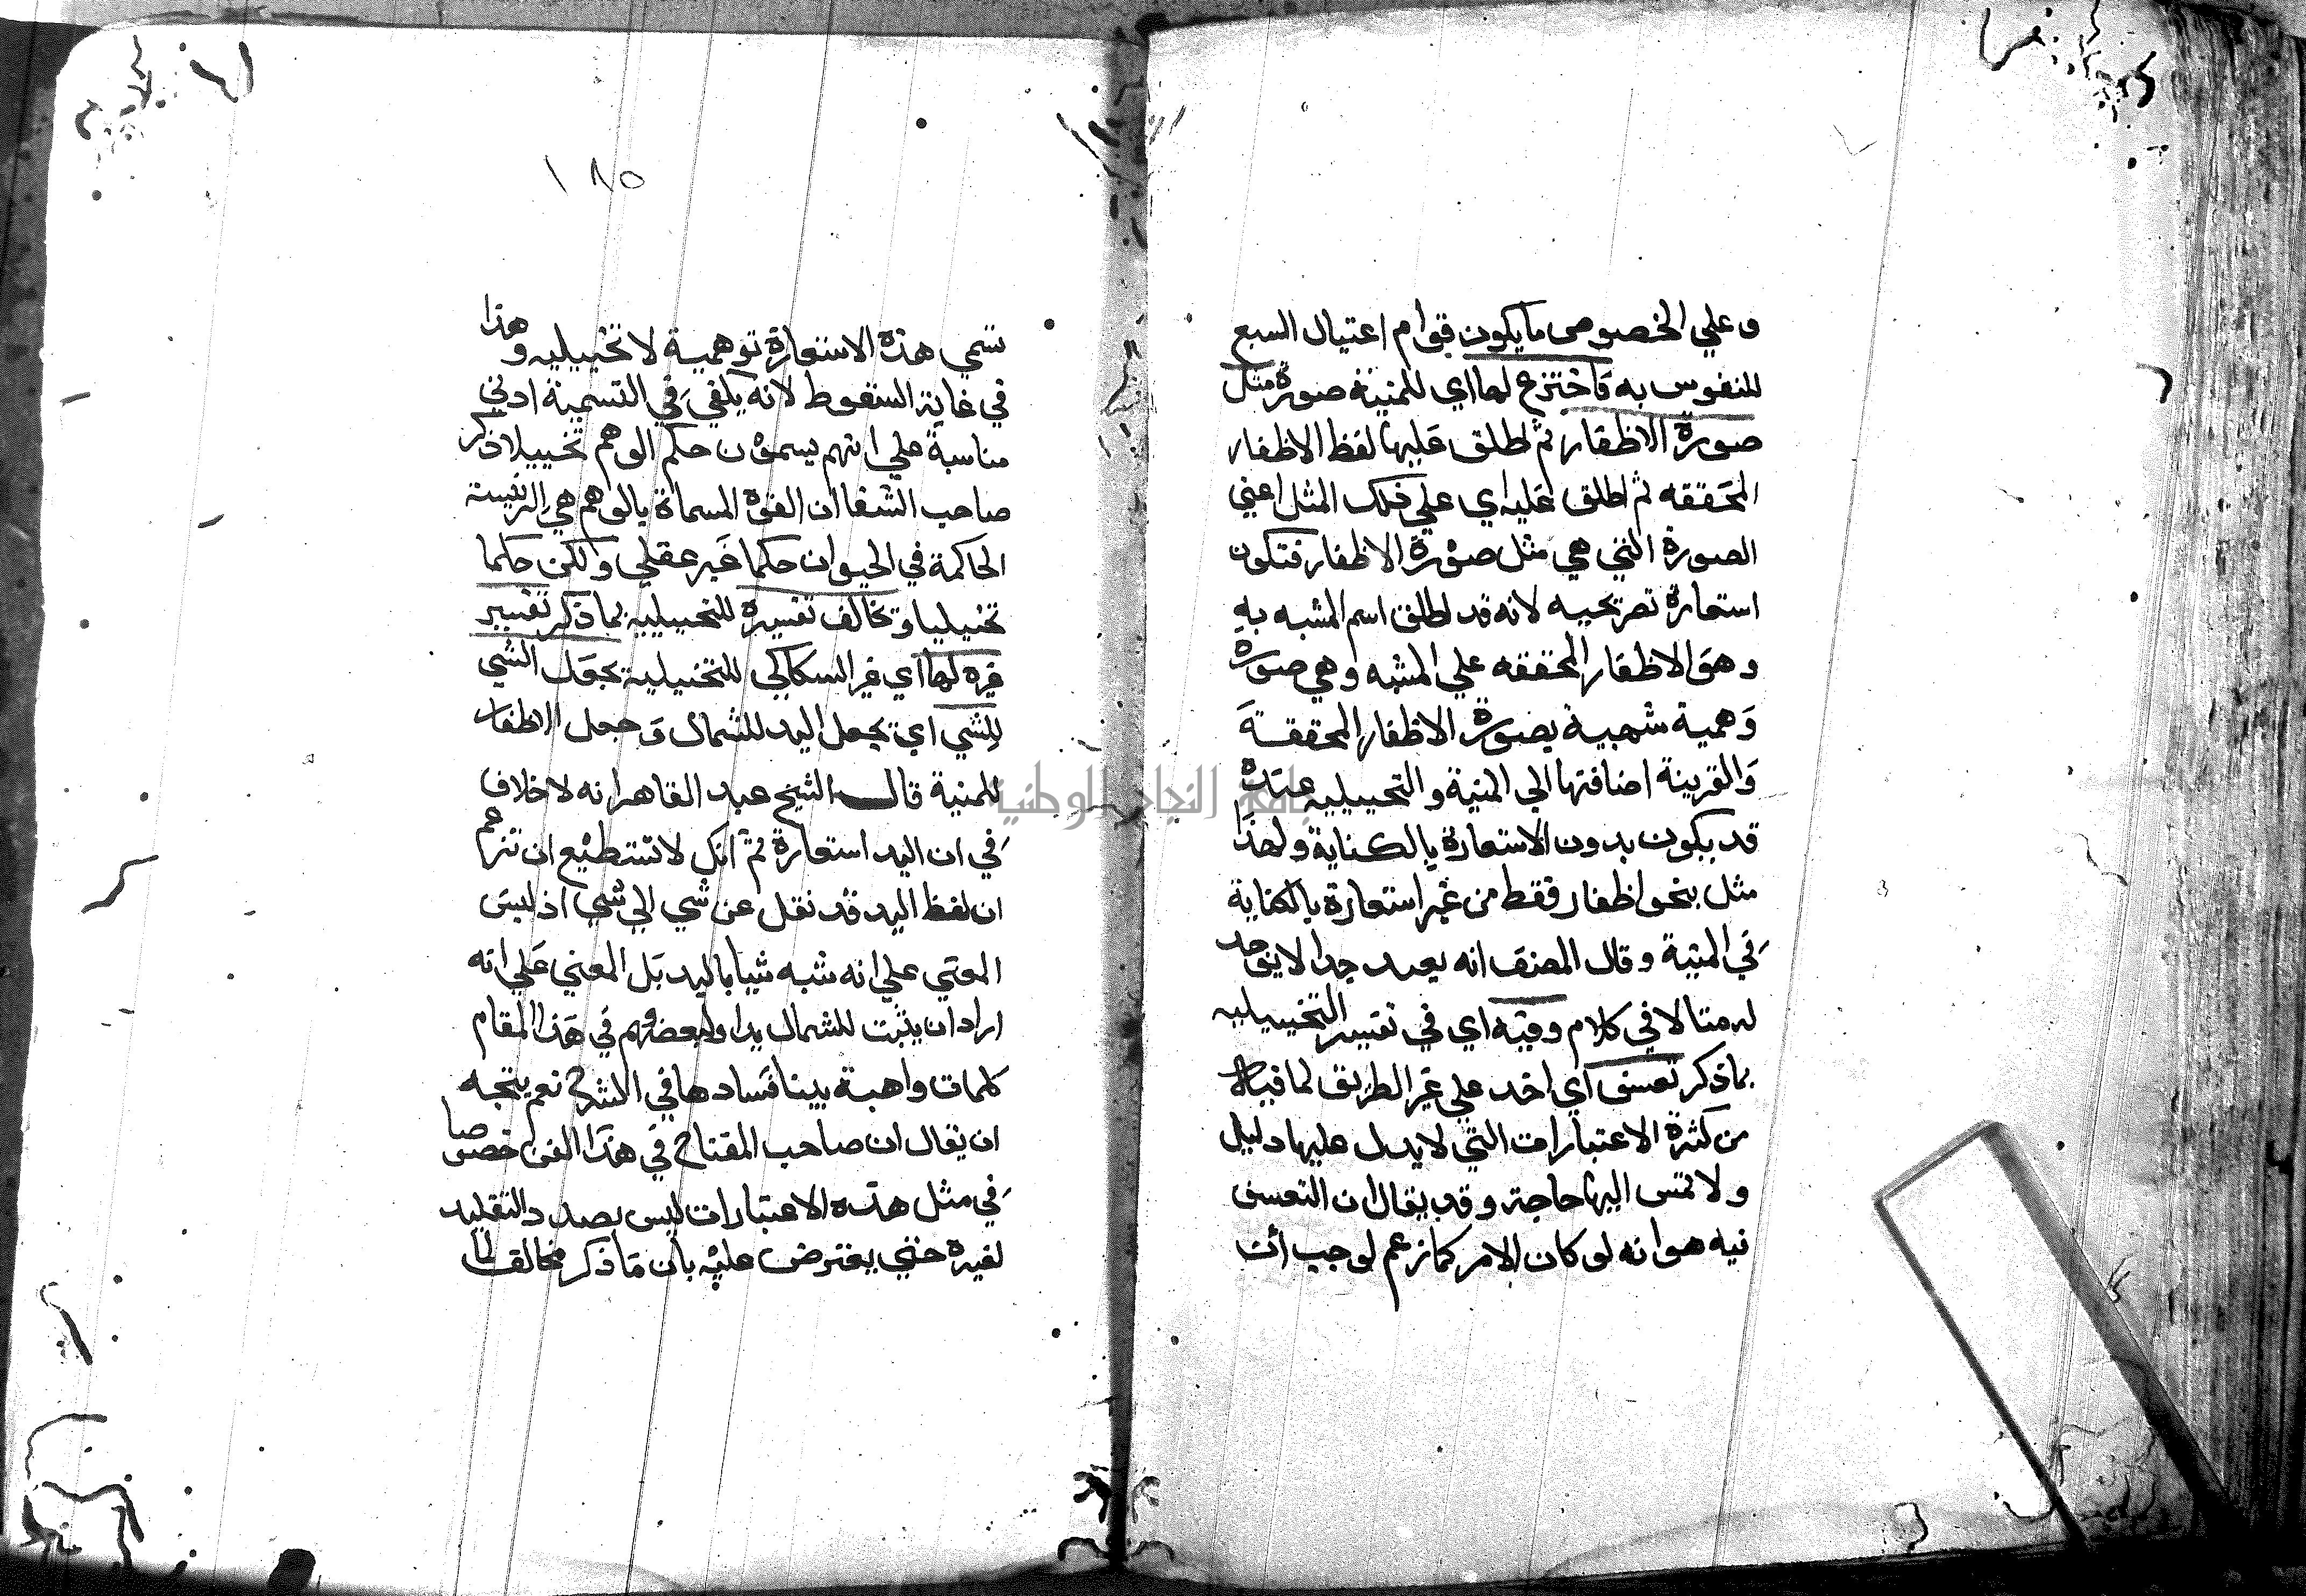 وعلي الخصوص ما يكون قوام اعتيال السبع
للنفوس به فاخترع لها اي للمنية صورة مثل
صورة الاظفار ثم اطلق عليها لفظ الاظفار
المحققه ثم اطلق عليه اي علي ذلك المثل اعني
الصورة التي هي مثل صورة الاظفار فتكون
استعارة تصريحيه لانه قد اطلق اسم المشبه به
وهو الاظفار المحققه علي المشبه وهي صورة
وهمية شبهية بصورة الاظفار المحققة
والقرينة اضافتها الي المنية والتخييليه عنده
قد يكون بدون الاستعارة بالكناية ولهذا
مثل بنحو اظفار فقط من غير استعارة بالكناية
في المنية وقال المصنف انه بعيد جدا لا يوجد
له مثالا في كلام وفيه اي في تفسير التخييليه
بما ذكر تعسف اي اخد علي غير الطريق لما فيه
من كثرة الاعتبارات التي لا يدل عليها دليل
ولا تمس اليها حاجة وقد يقال ان التعسف
فيه هو انه لو كان الامر كما زعم لوجب أن
١٨٥
تسمي هذه الاستعارة توهمية لا تخييليه وهذا
في غاية السقوط لانه يكفي في التسمية ادني
مناسبة علي انهم يسمون حكم الوهم تخييلا ذكر
صاحب الشفا ان القوة المسماة بالوهم هي الرئيسة
الحاكمة في الحيوان حكما غير عقلي ولكن حكما
تخييليا وتخالف تفسيره للتخييلية بما ذكر تفسير
غيره لها اي غير السكاكي للتخييلية بجعل الشي
للشي اي تجعل اليد للشمال وجعل الاظفار
للمنية قال الشيخ عبد القاهر انه لا خلاف
في ان اليد استعارة ثم انك لا تستطيع ان تزعم
ان لفظ اليد قد نقل عن شي الي شي اذ ليس
المعني علي انه شبه شيا باليد بل المعني علي انه
اراد ان يثبت للشمال يدا ولبعضهم في هذا المقام
كلمات واهية بينا فسادها في الشرح نعم يتجه
ان يقال ان صاحب المفتاح في هذا الفن خصوصا
في مثل هذه الاعتبارات ليس بصدد التقليد
لغيره حتي يعترض عليه بان ما ذكر مخالف لما
جامعة النجاح الوطنية